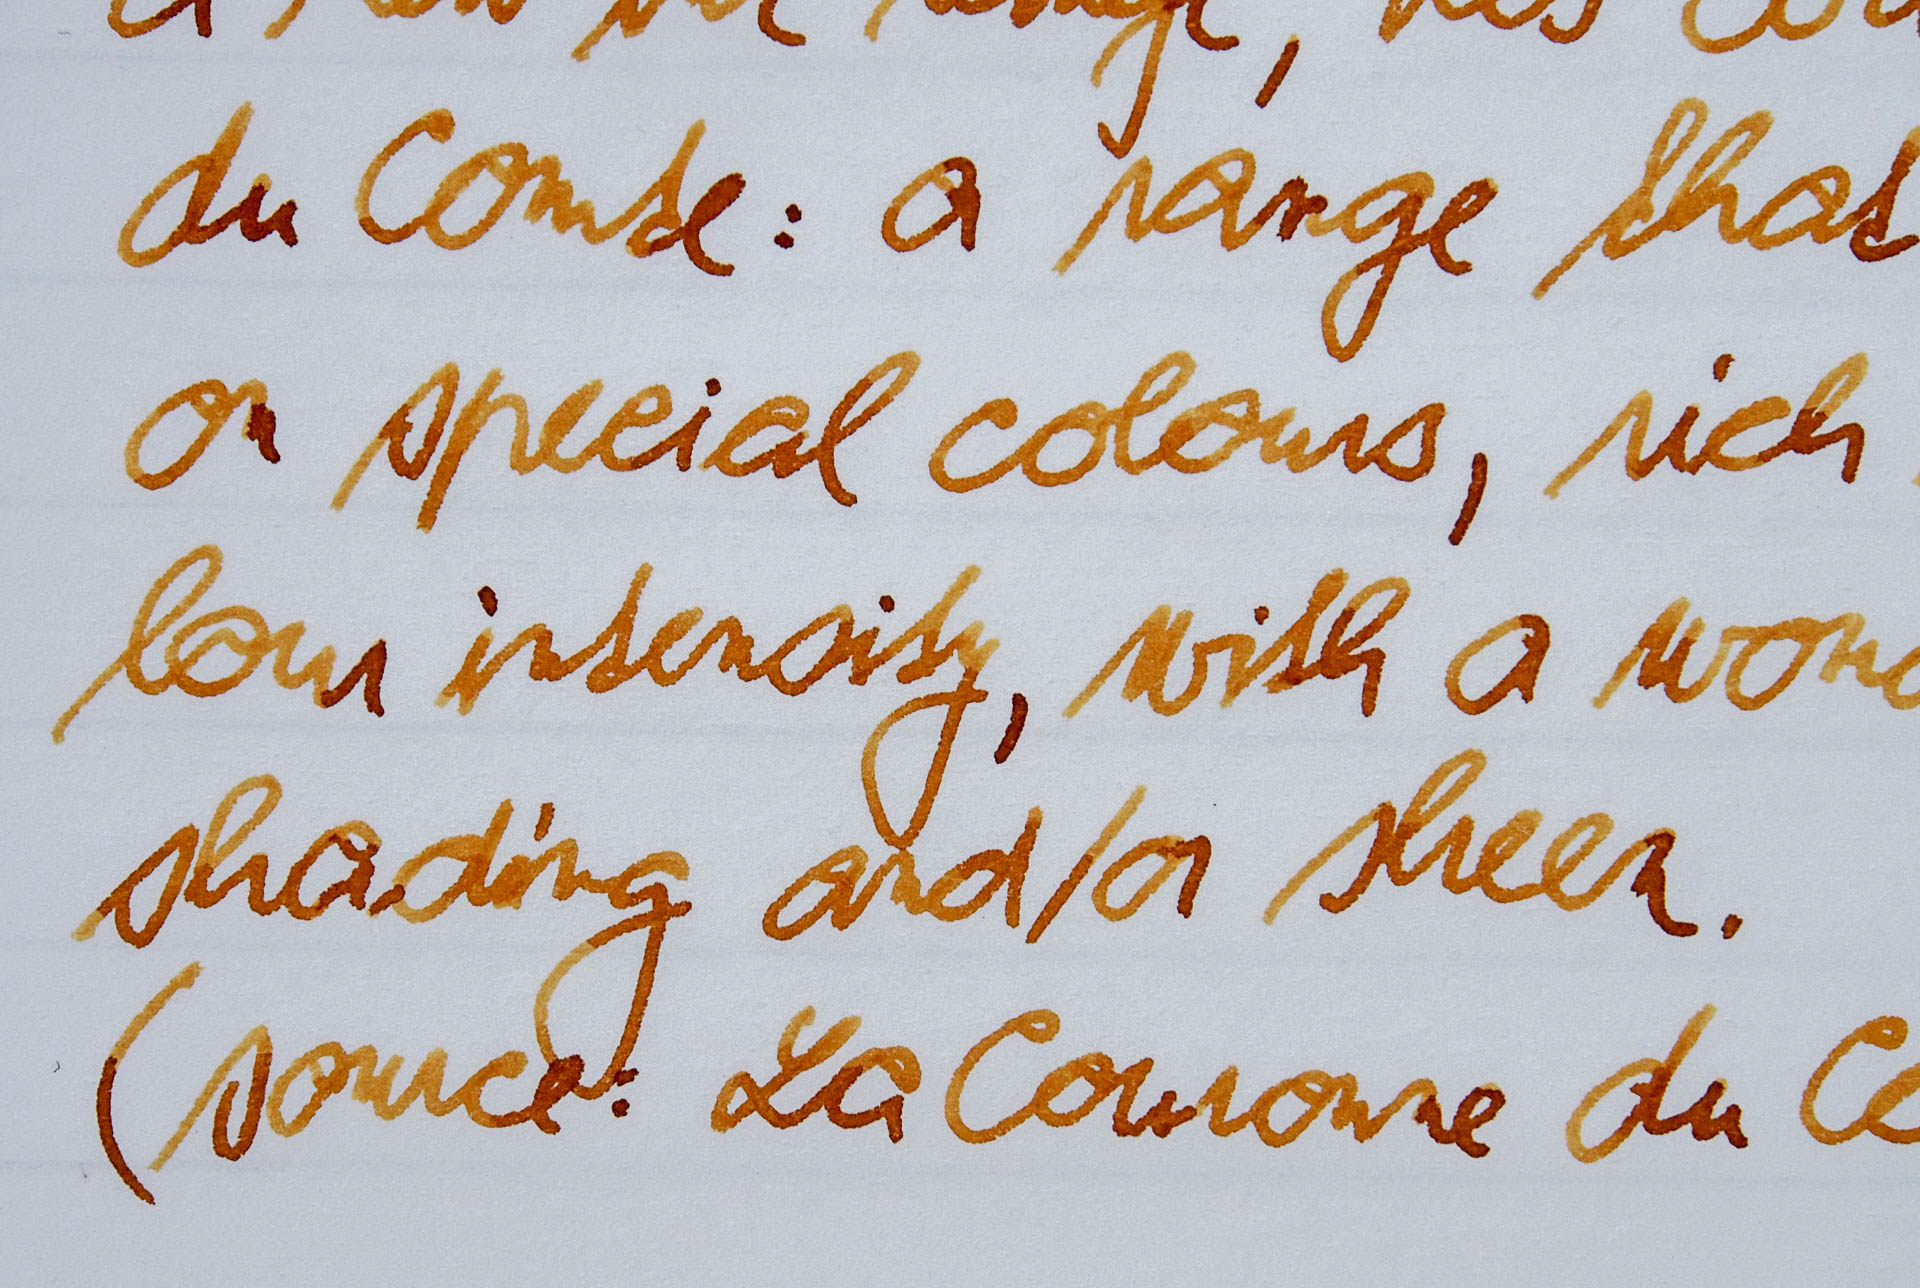 range, Les
du Comte: a range that
on special colours, rich
lour intensity, with a
shading and/or sheen.
(source: La Couronne du Co